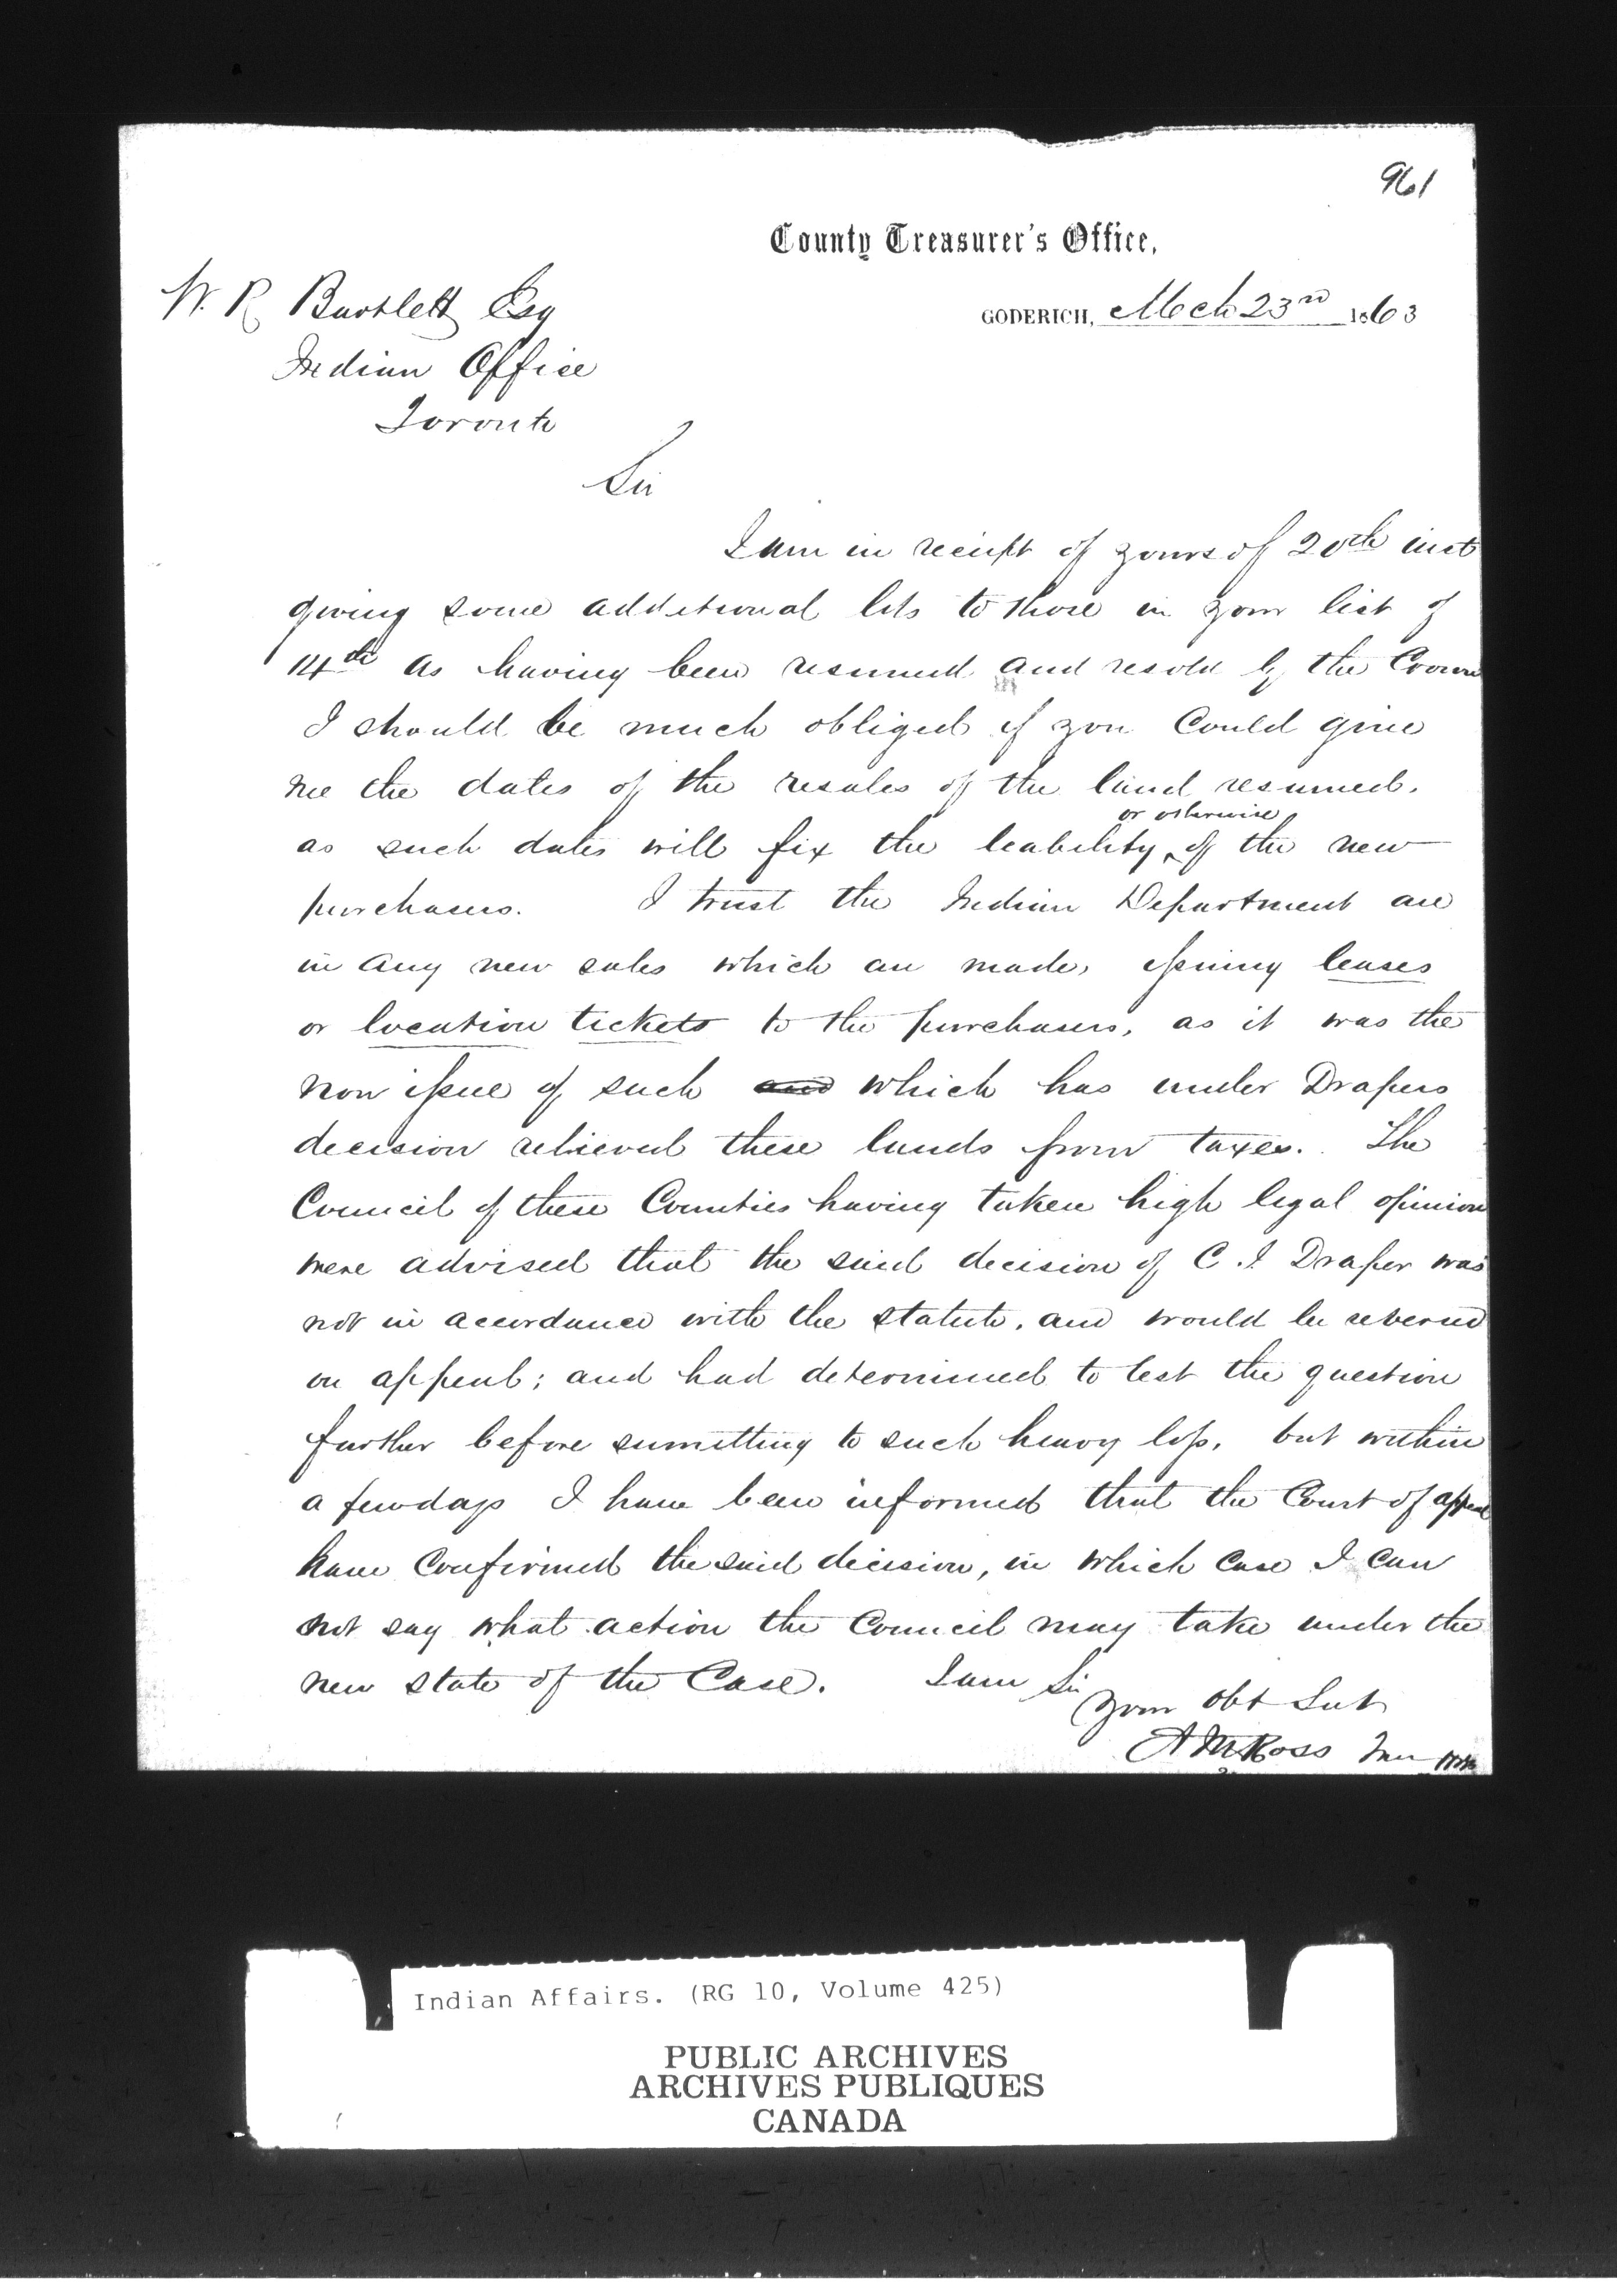 961
County Treasurer's Office,
GODERICH, Mch 23rd 1863
W. R. Bartlett Esq
Indian Office
Toronto
Sir
I am in receipt of yours of 20th inst
giving some additional lots to those in your list of
14th as having been resumed and resold by the Crown
I should be much obliged if you Could give
me the dates of the resales of the land resumed.
or otherwise
as such dates will fix the leability of the new
purchasers. I trust the Indian Department are
in any new sales which are made, issuing leases
or location tickets to the purchasers, as it was the
non issue of such and which has under Drapers
decision relieved these lands from taxes. The
Council of these Counties having taken high legal opinion
were advised that the said decision of C. J. Draper was
not in accordance with the statute, and would be reversed
on appeal; and had determined to test the question
further before sumitting to such heavy loss, but within
a few days I have been informed that the Court of appeal
have Confirmed the said decision, in which Case I Can
not say what action the Council may take under the
new state of the Case. I am Sir
your Obt Svt
A M Ross
Indian Affairs. (RG 10, Volume 425)
PUBLIC ARCHIVES
ARCHIVES PUBLIQUES
CANADA